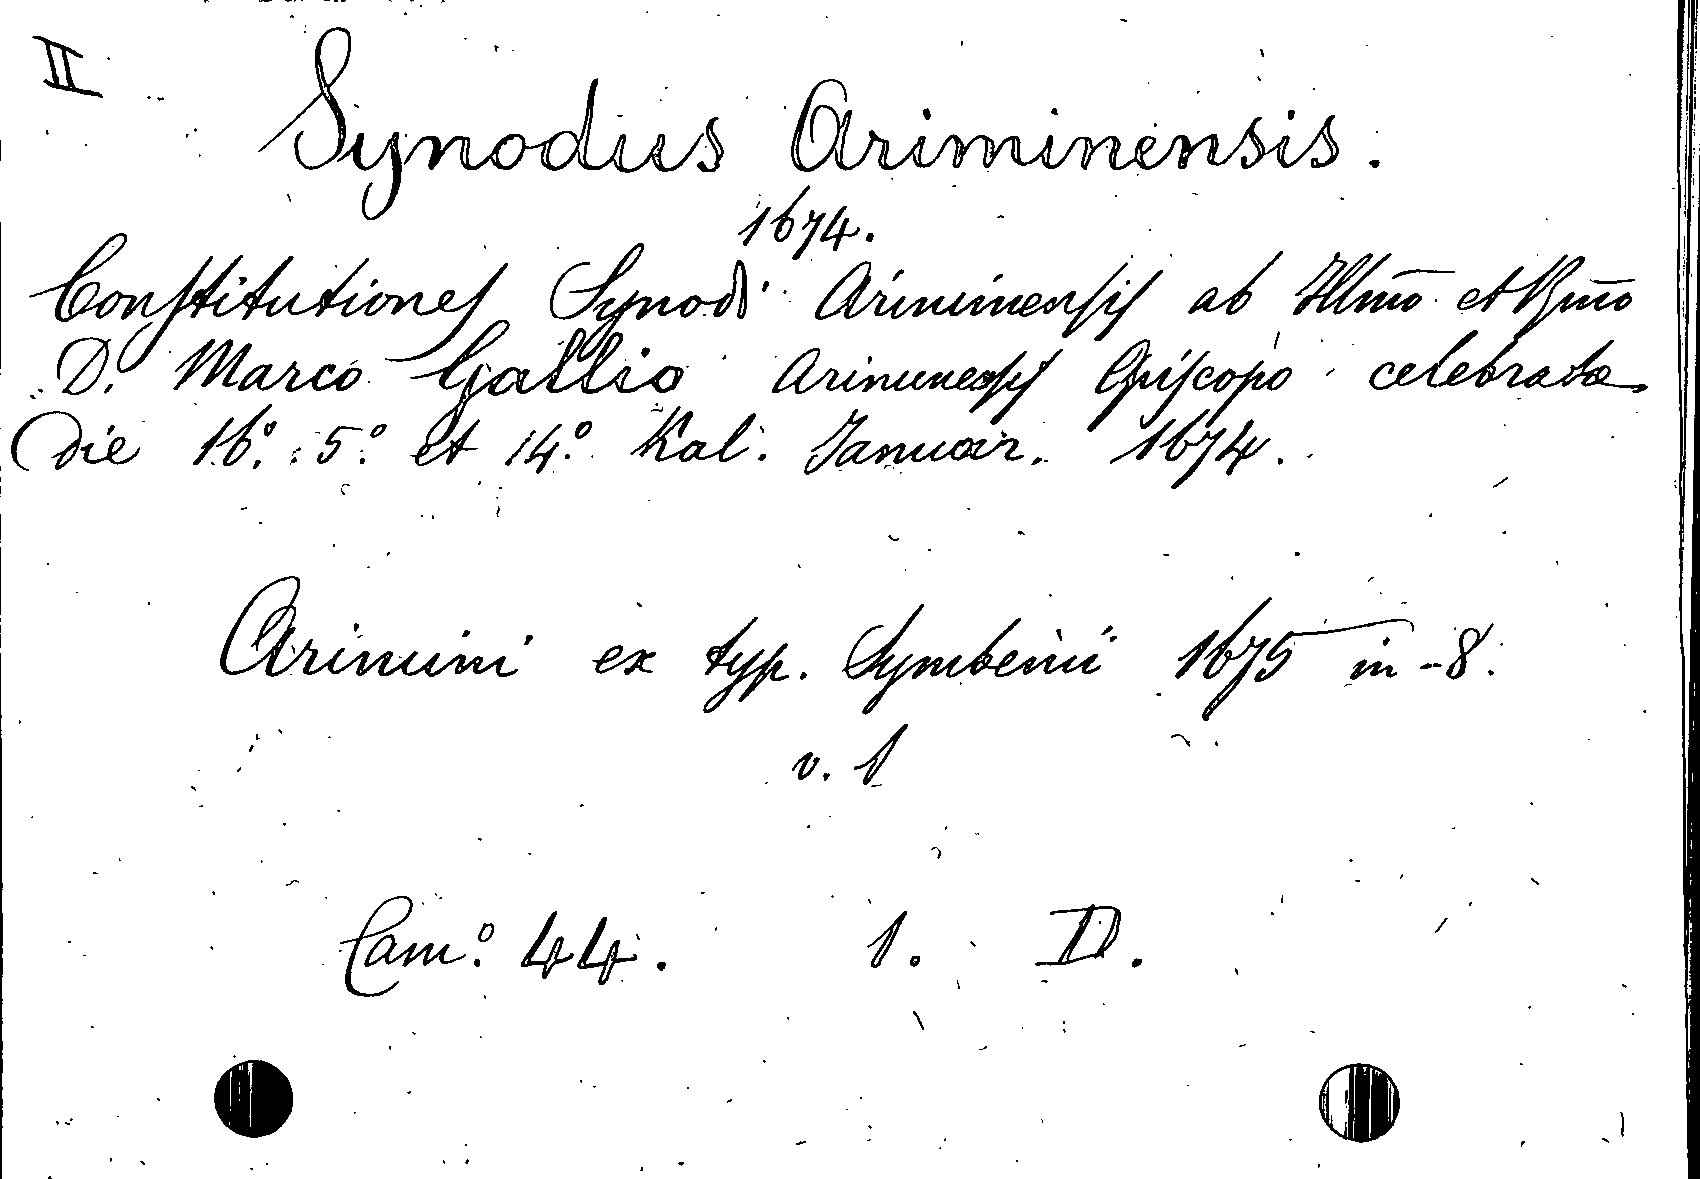 II
Synodus Ariminensis.
1674.
Conſtitutiones Synodi Ariminenſis ab Illmo et Rmo
D. Marco Gallio Ariminenſis Epiſcopo celebrata
Die 16.º 5.º et 14.º Kal. Januar. 1674.
Arimini ex typ. Symbenii 1675 in-8.
v. 1
Cam.º 44. 1. D.